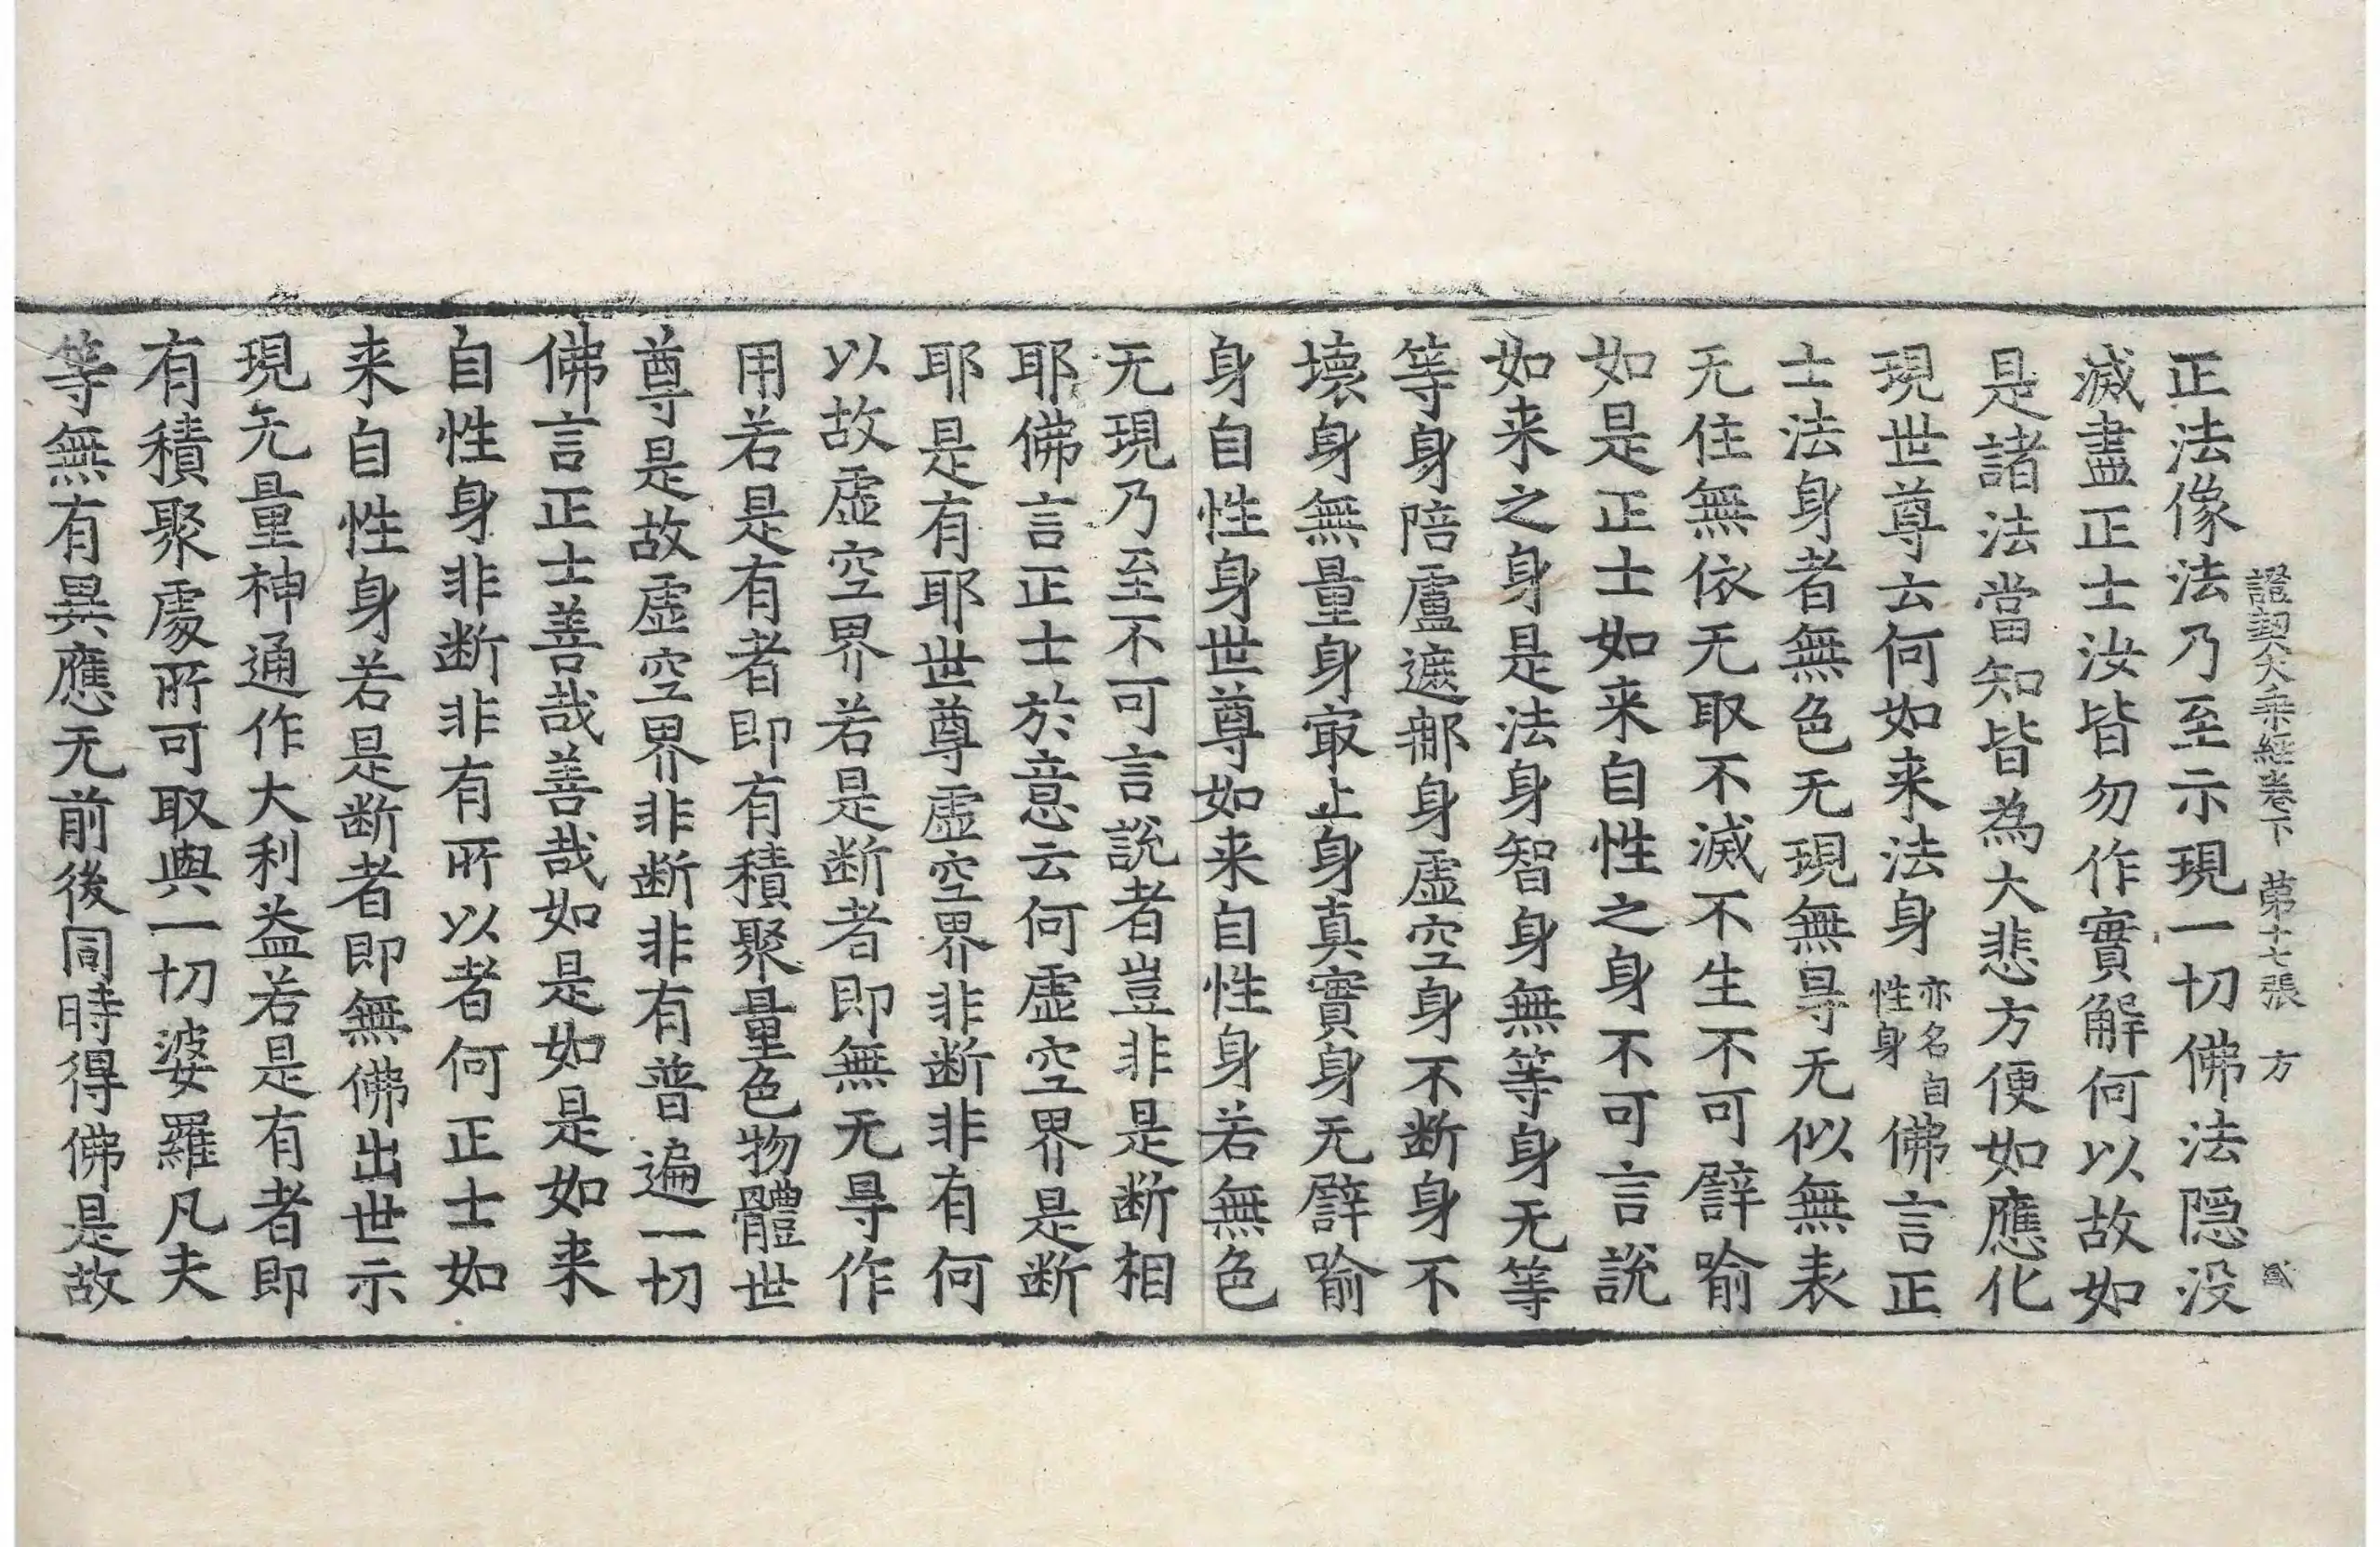 證契大乘經卷下　第十七張　方
正法像法乃至示現一切佛法隱没
滅盡正士汝皆勿作實解何以故如
是諸法當知皆為大悲方便如應化
現世尊云何如来法身亦名自性身佛言正
士法身者無色无現無㝵无似無表
无住無依无取不滅不生不可譬喻
如是正士如来自性之身不可言說
如来之身是法身智身無等身无等
等身陪盧遮那身虛空身不断身不
壞身無量身㝡上身真實身无譬喻
身自性身世尊如来自性身若無色
无現乃至不可言說者豈非是断相
耶佛言正士於意云何虛空界是断
耶是有耶世尊虛空界非断非有何
以故虛空界若是断者即無无㝵作
用若是有者即有積聚量色物體世
尊是故虛空界非断非有普遍一切
佛言正士善哉善哉如是如是如来
自性身非断非有所以者何正士如
来自性身若是断者即無佛出世示
現无量神通作大利益若是有者即
有積聚處所可取與一切婆羅凡夫
等無有異應无前後同時得佛是故